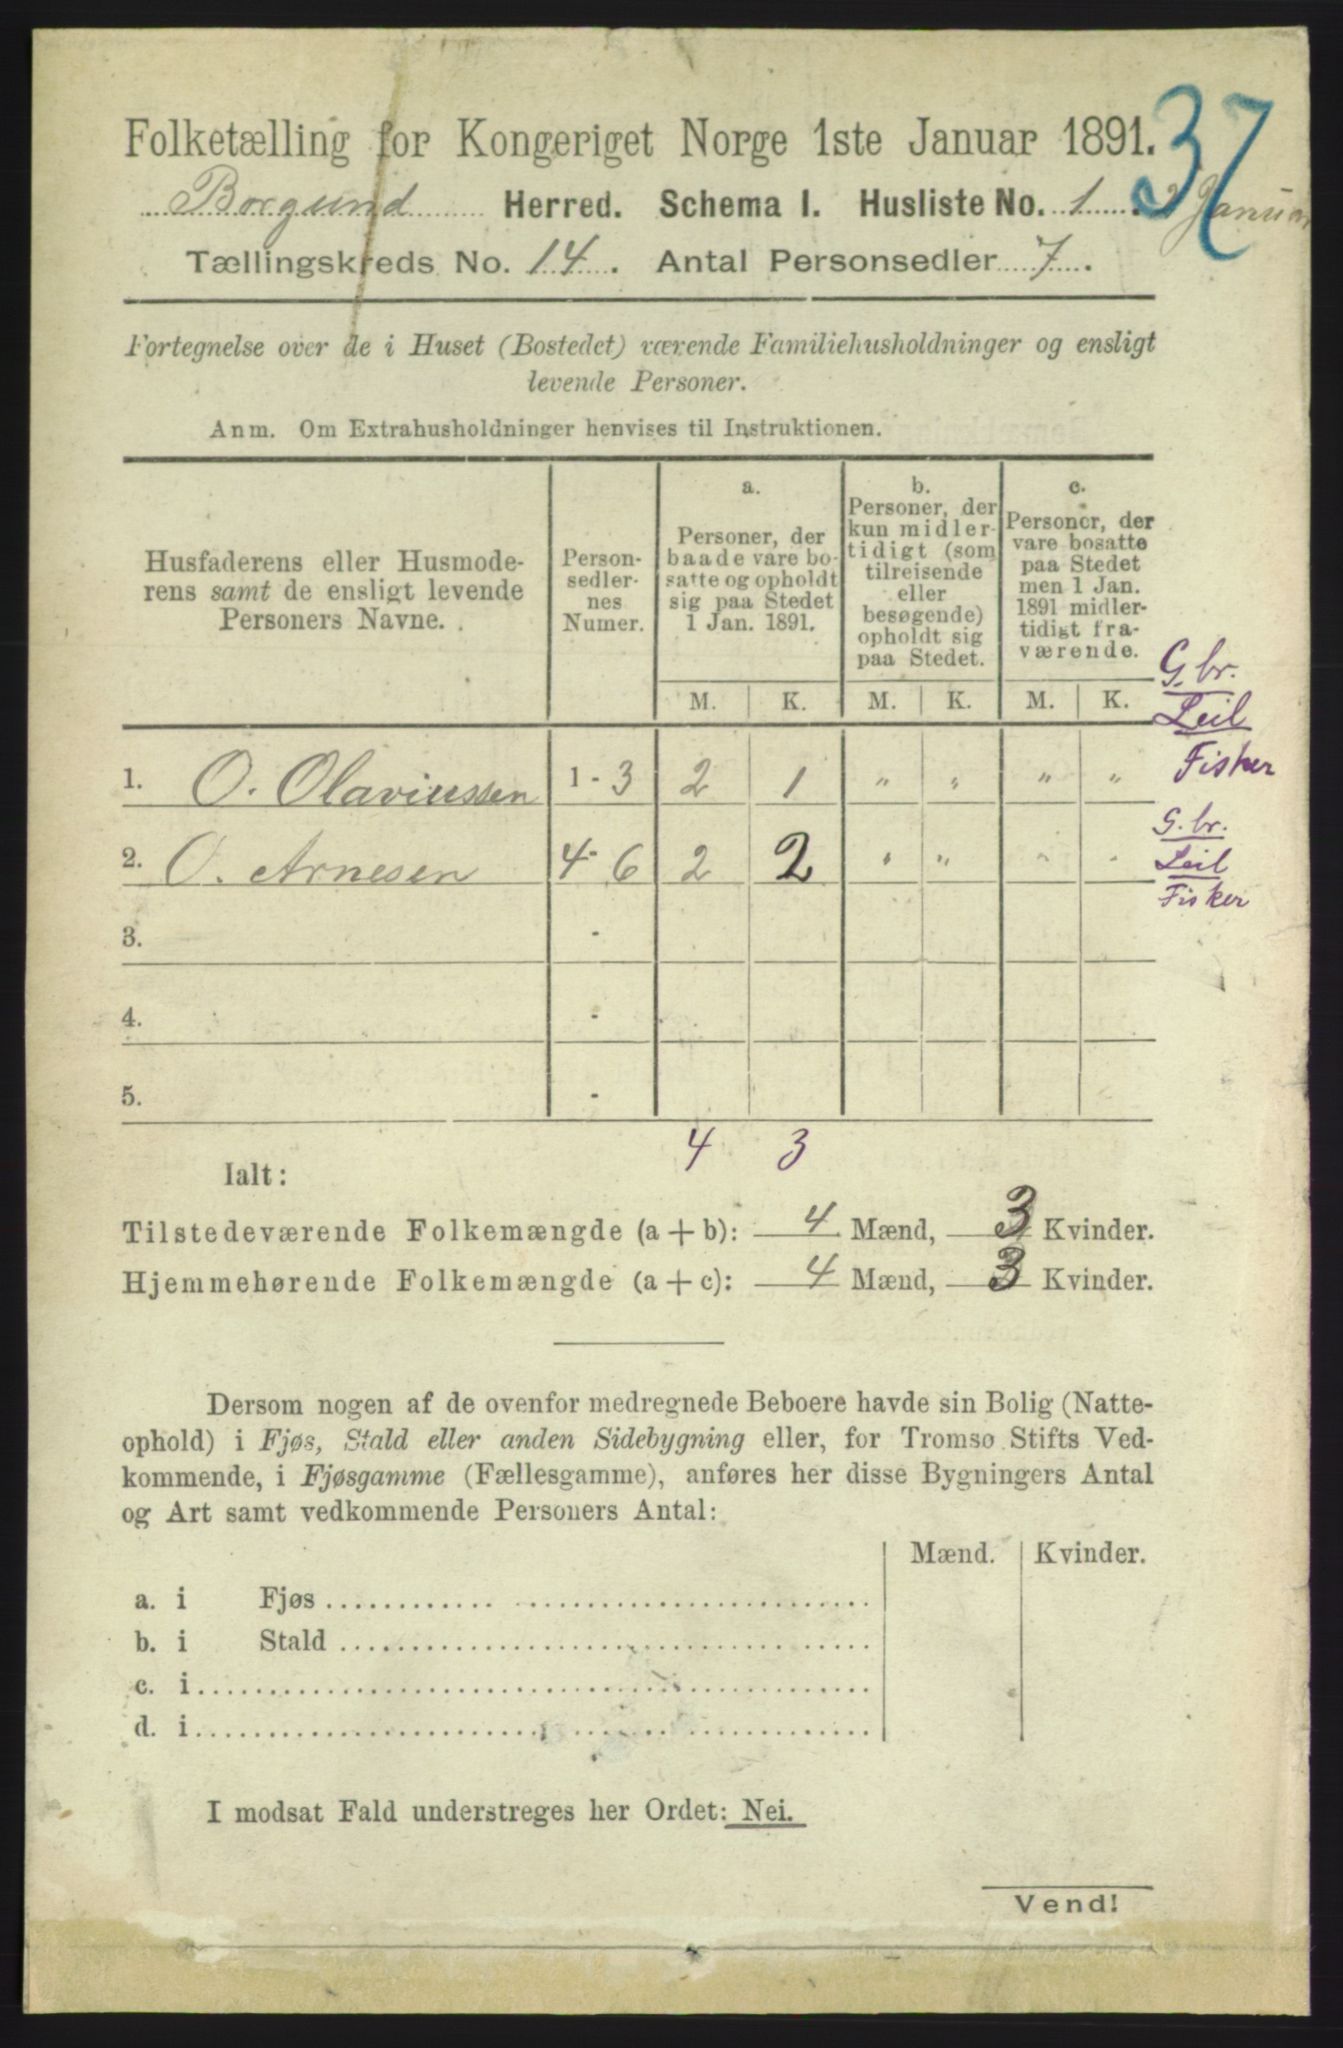 37
Folketælling for Kongeriget Norge 1ste Januar 1891.
Borgund Herred. Schema I. Husliste No. 1. 2 Januar
Tællingskreds No. 14. Antal Personsedler 7.
Fortegnelse over de i Huset (Bostedet) værende Familiehusholdninger og ensligt
levende Personer.
Anm. Om Extrahusholdninger henvises til Instruktionen.
Husfaderens eller Husmode-
rens samt de ensligt levende
Personers Navne.
Person-
sedler-
nes
Numer.
a.
Personer, der
baade vare bo-
satte og opholdt
sig paa Stedet
1 Jan. 1891.
b.
Personer, der
kun midler-
tidigt (som
tilreisende
eller
besøgende)
opholdt sig
paa Stedet.
c.
Personer, der
vare bosatte
paa Stedet
men 1 Jan.
1891 midler-
tidigt fra-
værende.
M. K. M. K. M. K.
G. br.
Leil
Fisker
1. O. Olaviussen 1 - 3 2 1 " " " "
G. br.
Leil
Fisker
2. O. Arnesen 4 - 6 2 2 " " " "
3. -
4. -
5. -
4 3
Ialt:
Tilstedeværende Folkemængde (a + b): 4 Mænd, 3 Kvinder.
Hjemmehørende Folkemængde (a + c): 4 Mænd, 3 Kvinder.
Dersom nogen af de ovenfor medregnede Beboere havde sin Bolig (Natte-
ophold) i Fjøs, Stald eller anden Sidebygning eller, for Tromsø Stifts Ved-
kommende, i Fjøsgamme (Fællesgamme), anføres her disse Bygningers Antal
og Art samt vedkommende Personers Antal:
Mænd. Kvinder.
a. i Fjøs
b. i Stald
c. i
d. i
I modsat Fald understreges her Ordet: Nei.
Vend!